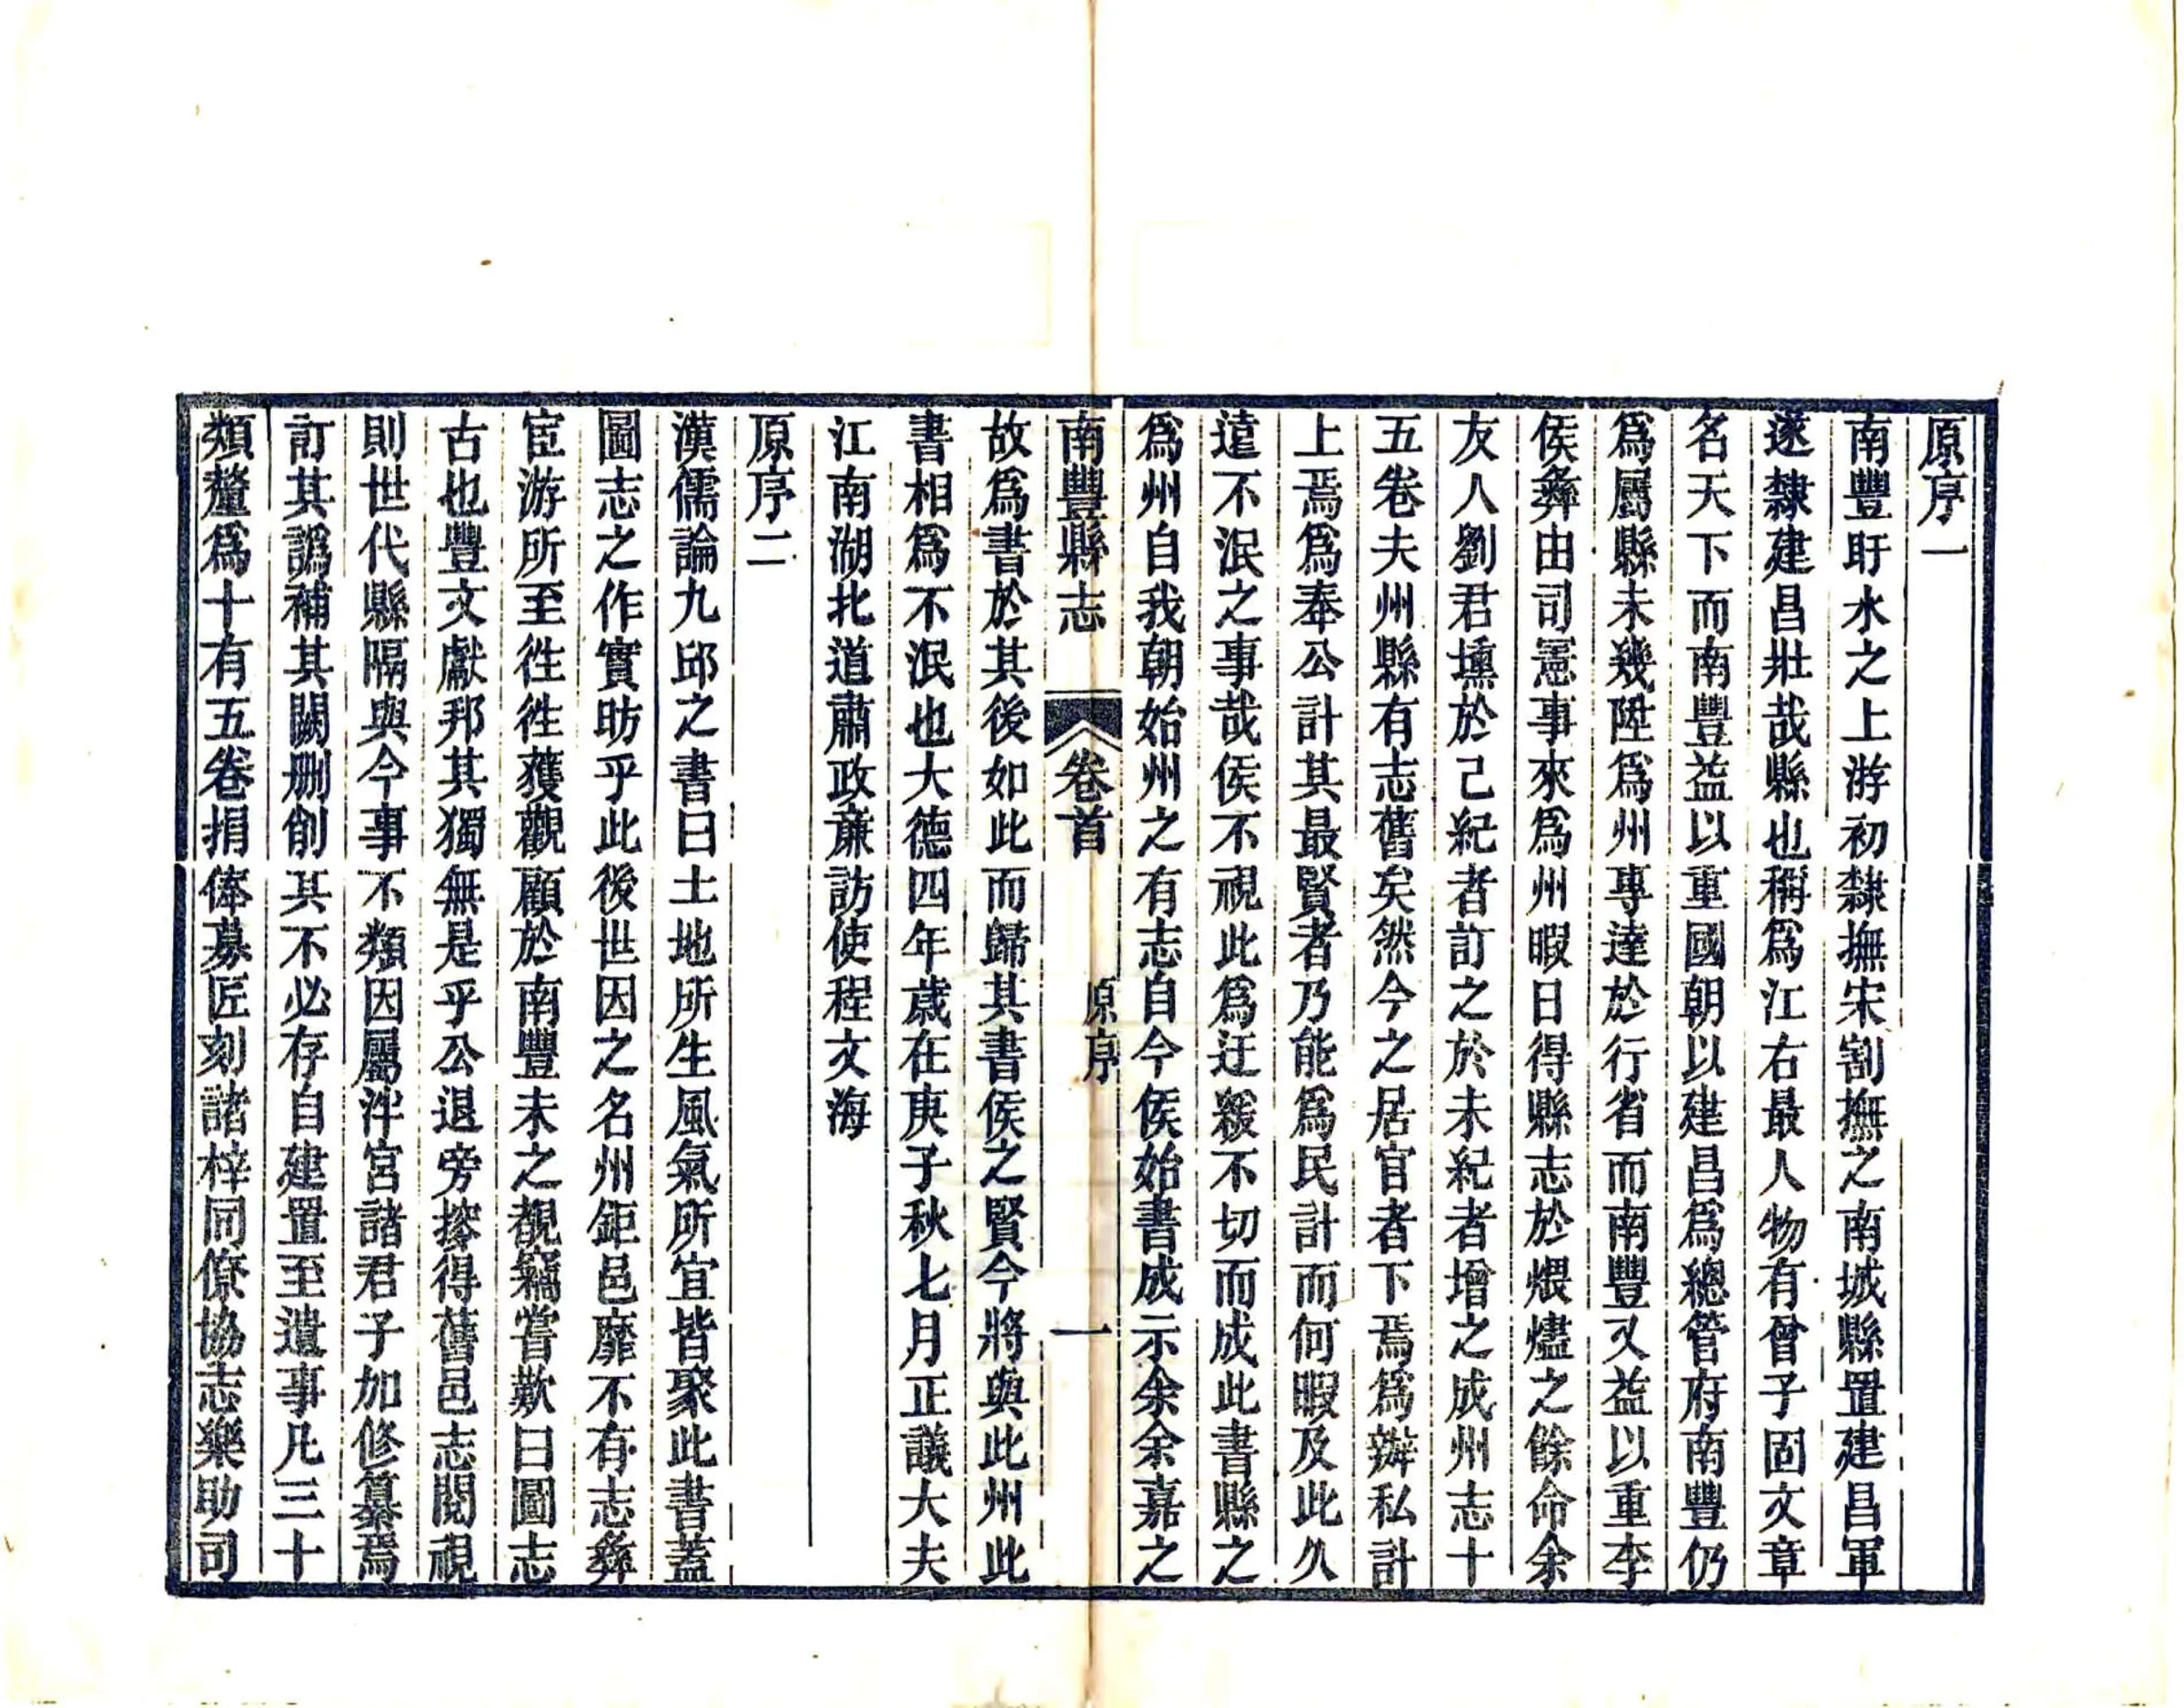 原序一
南豐盱水之上游初隸撫宋割撫之南城縣置建昌軍
遂隸建昌壯哉縣也稱爲江右最人物有曾子固文章
名天下而南豐益以重國朝以建昌爲總管府南豐仍
爲屬縣未幾陞爲州專達於行省而南豐又益以重李
侯彝由司憲事來爲州暇日得縣志於煨燼之餘命余
友人劉君壎於己紀者訂之於未紀者增之成州志十
五卷夫州縣有志舊矣然今之居官者下焉爲辦私計
上焉爲奉公計其最賢者乃能爲民計而何暇及此久
遠不泯之事哉侯不視此爲迂緩不切而成此書縣之
爲州自我朝始州之有志自今侯始書成示余余嘉之
南豐縣志
卷首
原序
一
故爲書於其後如此而歸其書侯之賢今將與此州此
書相爲不泯也大德四年歲在庚子秋七月正議大夫
江南湖北道肅政亷訪使程文海
原序二
漢儒論九邱之書曰土地所生風氣所宜皆聚此書蓋
圖志之作實昉乎此後世因之名州鉅邑靡不有志彝
宦游所至徃徃獲觀顧於南豐未之覩竊嘗歎曰圖志
古也豐文獻邦其獨無是乎公退旁搜得舊邑志閱視
則世代縣隔與今事不類因屬泮宮諸君子加修纂焉
訂其譌補其闕刪削其不必存自建置至遺事凡三十
類釐爲十有五卷捐俸募匠刻諸梓同僚協志樂助司